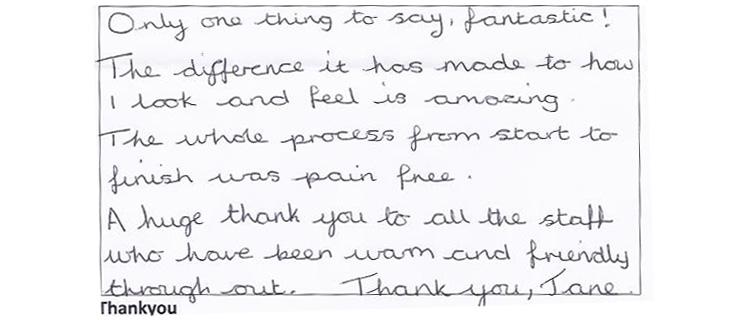 Only one thing to say, fantastic!
The difference it has made to how
I look and feel is amazing.
The whole process from start to
finish was pain free.
A huge thank you to all the staff
who have been warm and friendly
through out. Thank you, Jane.
Thankyou